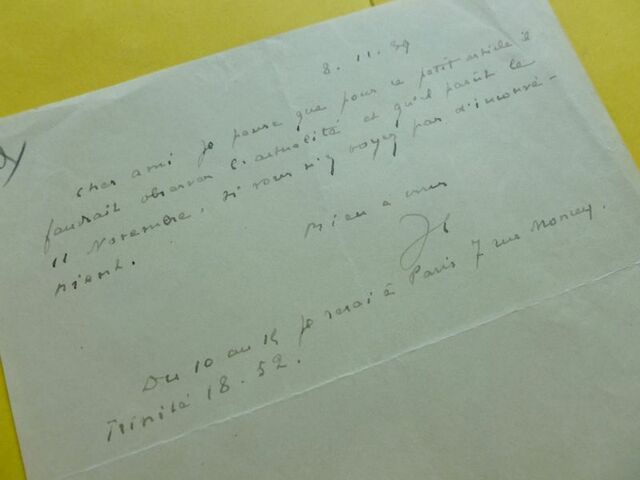 8.11.39
Cher ami je pense que pour ce petit article il
faudrait observer l'actualité et qu'il parût le
11 Novembre, si vous n'y voyez pas d'inconvé-
nient.
Bien à vous
Du 10 au 15 je serai à Paris 7 rue Moncey.
Trinité 18.52.